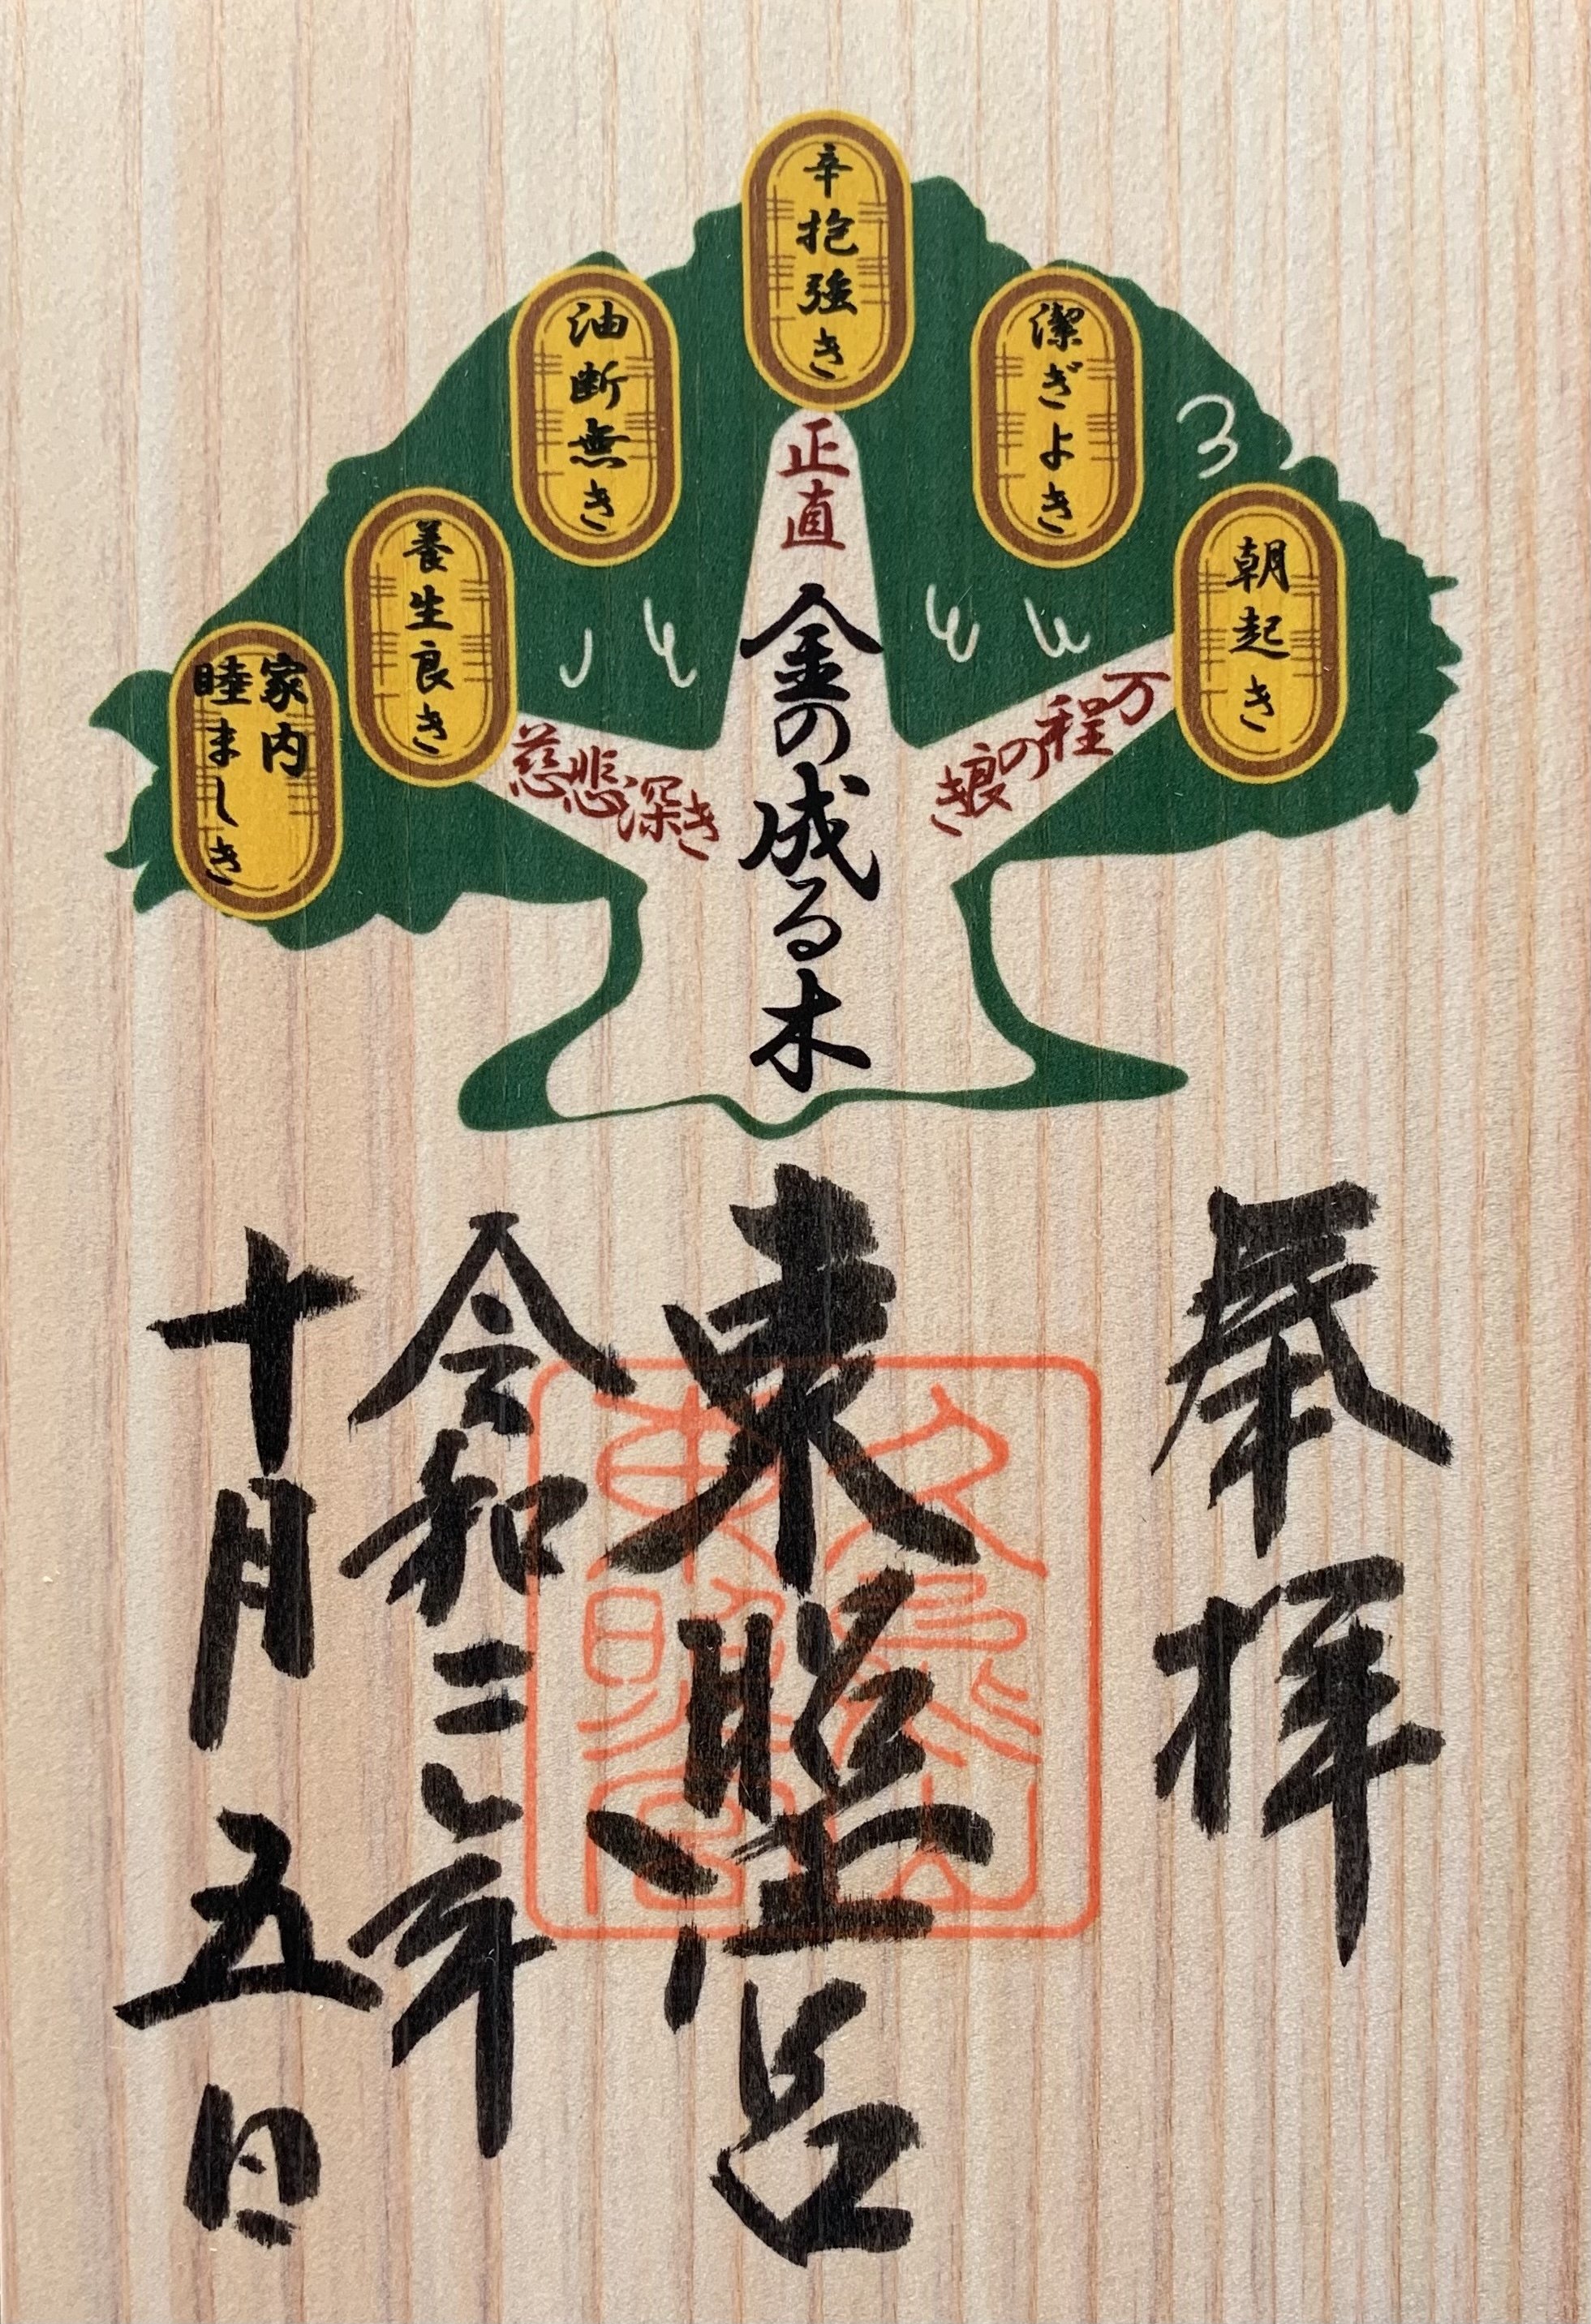 朝起き
潔ぎよき
辛抱強き
油断無き
養生良き
家内
睦ましき
万程の良き
正直
慈悲深き
金の成る木
奉拝
東照宮
久能山
東照宮
令和三年
十月五日